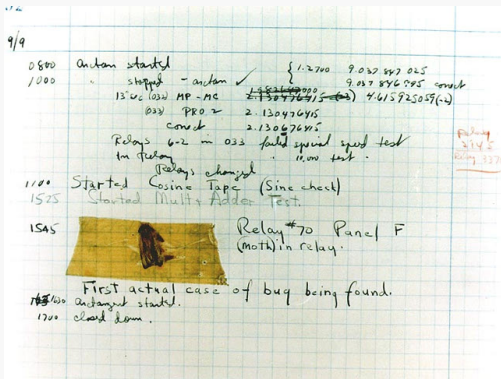 9/9
0800 antan started
1000 " stopped - antan ✓ { 1.2700 9.037 847 025
9.037 846 995 conect
13"uc (032) MP - MC 2.130476415 4.615925059(-2)
(033) PRO 2 2.130476415
conect 2.130676415
Relays 6-2 in 033 failed special speed test
in relay " 10,000 test .
Relay
2145
Relay 3370
Relays changed
1100 Started Cosine Tape (Sine check)
1525 Started Mult + Adder Test.
1545 Relay #70 Panel F
(moth) in relay.
First actual case of bug being found.
1630 antangent started.
1700 closed down.